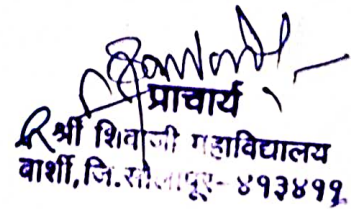 प्राचार्य
श्री शिवाजी महाविद्यालय
बार्शी, जि.सोलापूर- ४१३४११